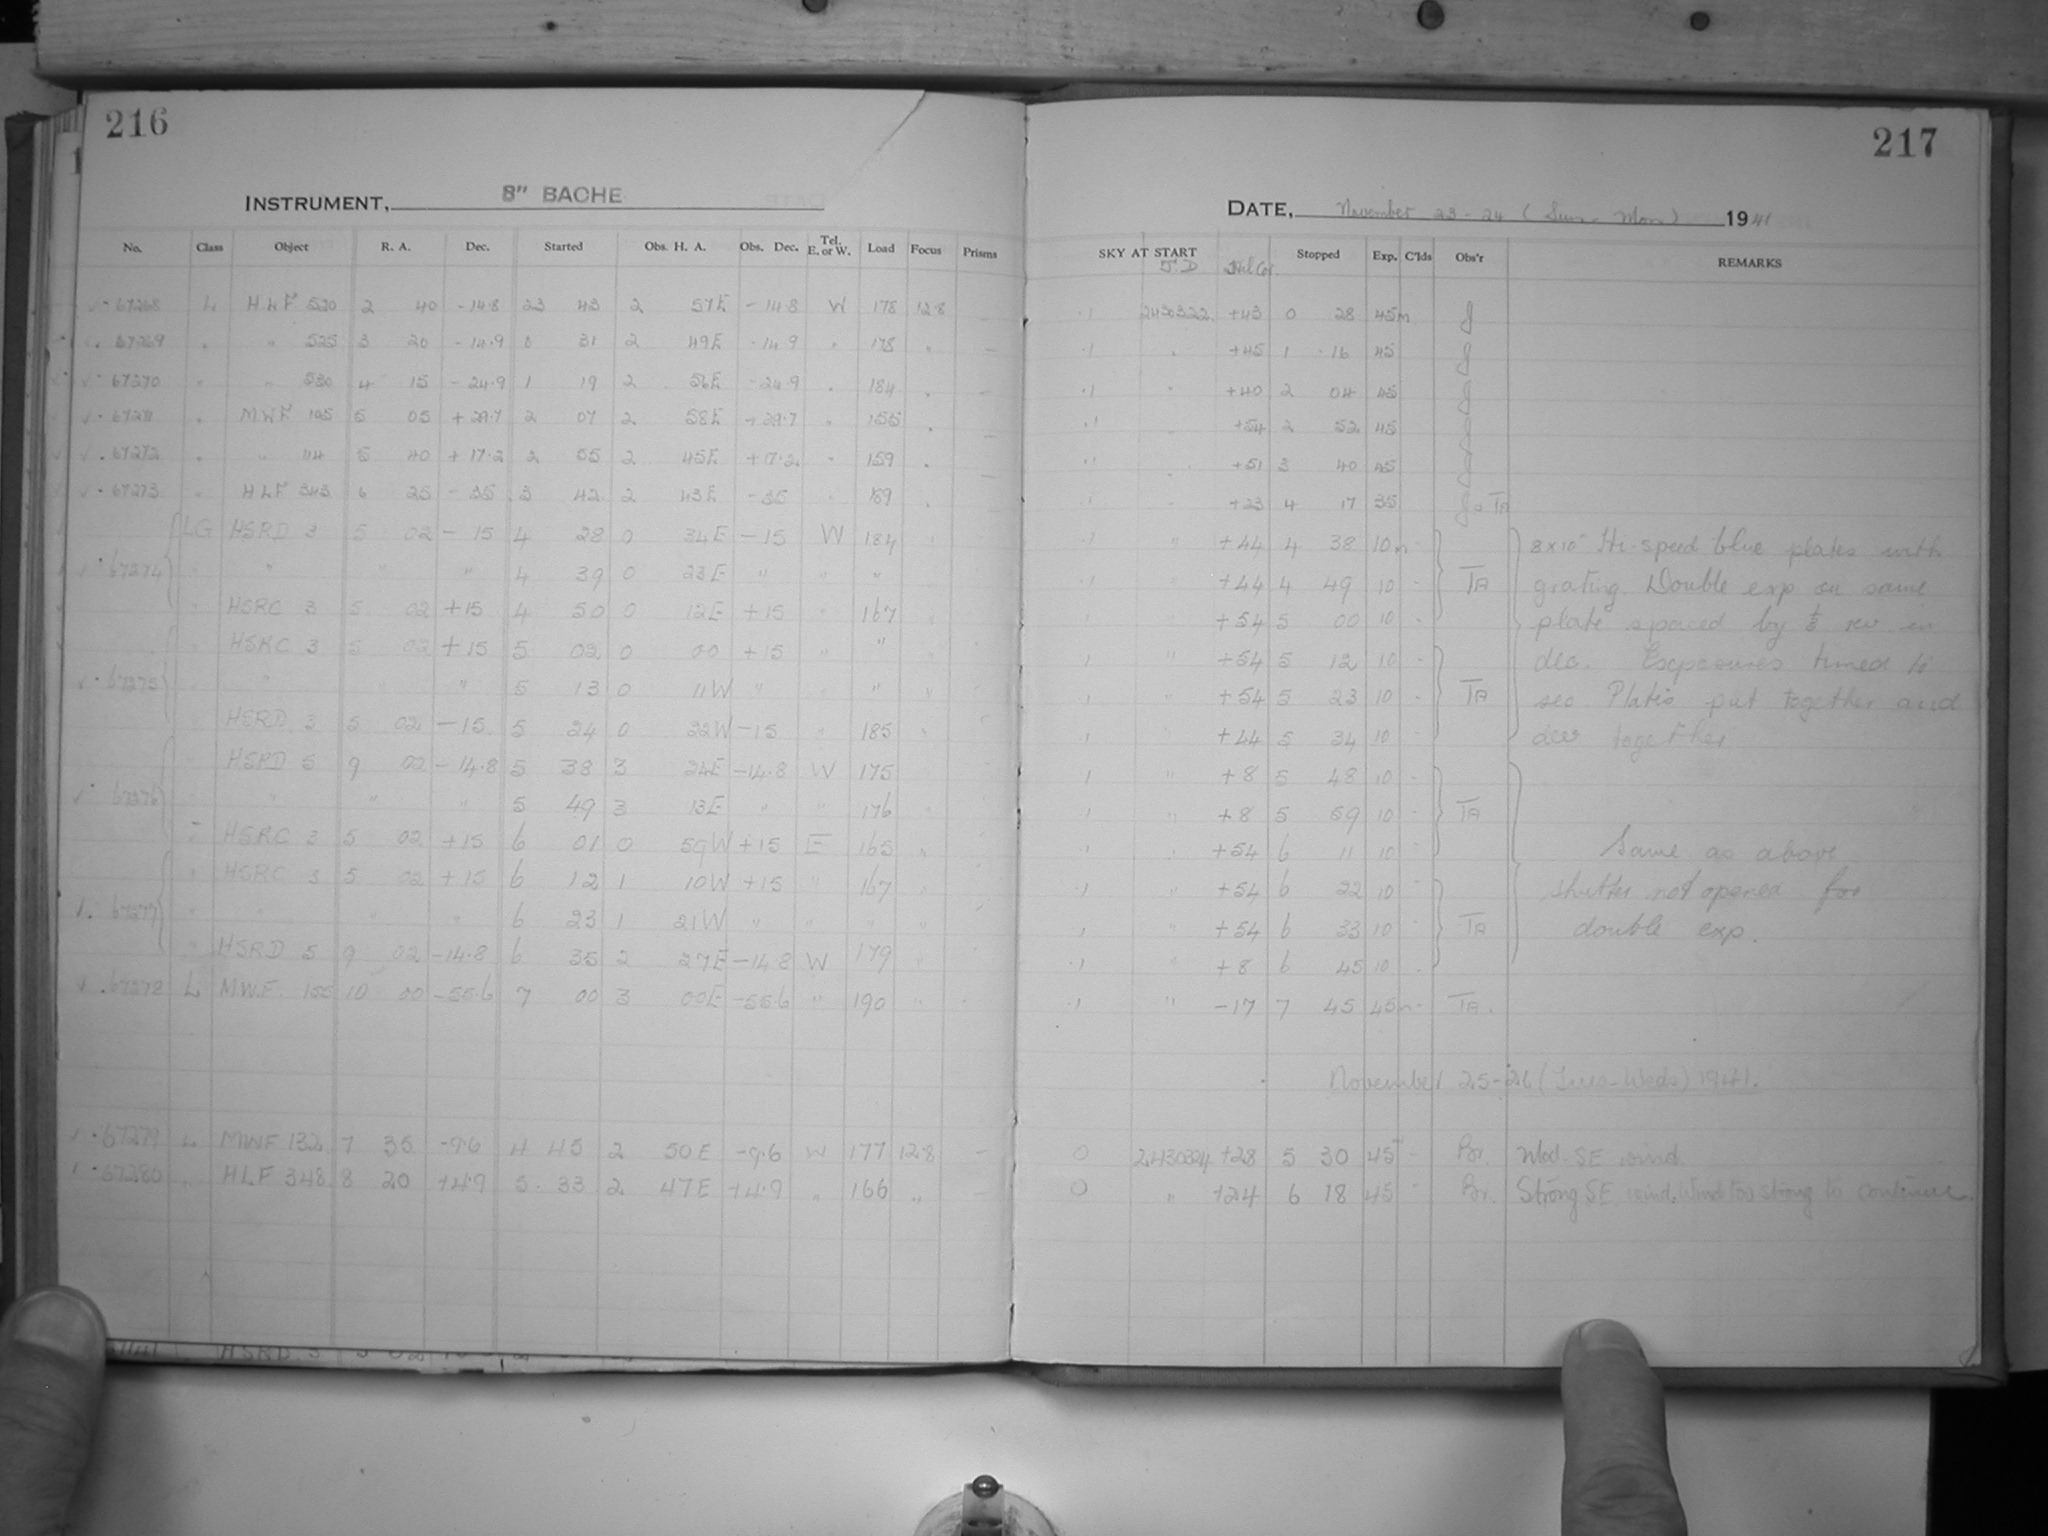 216
INSTRUMENT, 8" BACHE
No. Class Object R. A. Dec. Started Obs. H. A. Obs. Dec. Tel. E. or W. Load Focus Prisms
67268 L HLF 520 2 40 -14.8 23 43 2 57E -14.8 W 178 12.8
67269 " " 525 3 20 -14.9 0 31 2 49E -14.9 " 178 " -
67270 " " 530 4 15 -24.9 1 19 2 56E -24.9 " 184 " -
67271 " MWF 105 5 05 +29.7 2 07 2 58E +29.7 " 155 " -
67272 " " 114 5 40 +17.2 2 55 2 45E +17.2 " 159 " -
67273 " HLF 343 6 25 -35 3 42 2 43E -35 " 189 "
LG HSRD 3 5 02 -15 4 28 0 34E -15 W 184 "
67274 " " " " 4 39 0 23E " " "
" HSRC 3 5 02 +15 4 50 0 12E +15 " 167 "
" HSRC 3 5 02 +15 5 02 0 00 +15 " " "
67275 " " " " 5 13 0 11W " " " "
" HSRD 3 5 02 -15 5 24 0 22W -15 " 185 "
" HSRD 5 9 02 -14.8 5 38 3 24E -14.8 W 175 "
67276 " " " " 5 49 3 13E " " 176 "
" HSRC 3 5 02 +15 6 01 0 59W +15 E 165 "
" HSRC 3 5 02 +15 6 12 1 10W +15 " 167 "
67277 " " " " 6 23 1 21W " " " "
" HSRD 5 9 02 -14.8 6 35 2 27E -14.8 W 179 "
67278 L MWF 155 10 00 -55.6 7 00 3 00E -55.6 " 190 "
67279 L MWF 132 7 35 -9.6 4 45 2 50E -9.6 W 177 12.8 -
67280 " HLF 348 8 20 +4.9 5 33 2 47E +4.9 " 166 " -
HSRD 3
217
DATE, November 23-24 (Sun-Mon) 1941
SKY AT START J.D. Hel Cor. Stopped Exp. C'lds Obs'r REMARKS
.1 2430322 +43 0 28 45m J
.1 " +45 1 16 45 J
.1 " +40 2 04 45 J
.1 " +54 2 52 45 J
.1 " +51 3 40 45 J
" +23 4 17 35 J & TA
.1 " +44 4 38 10m 8x10" Hi-speed blue plates with
.1 " +44 4 49 10 TA grating. Double exp on same
" +54 5 00 10 plate spaced by rev in
.1 " +54 5 12 10 dec. Exposures timed to
.1 " +54 5 23 10 TA sec Plates put together and
.1 " +44 5 34 10 dev together
.1 " +8 5 48 10
.1 " +8 5 59 10 TA
" +54 6 11 10 Same as above,
.1 " +54 6 22 10 shutter not opened for
.1 " +54 6 33 10 TA double exp.
.1 " +8 6 45 10
.1 " -17 7 45 45m TA.
November 25-26 (Tues-Weds) 1941.
0 2430324 +28 5 30 45 - Br. Mod. SE wind.
0 " +24 6 18 45 Br. Strong SE wind. Wind too strong to continue.